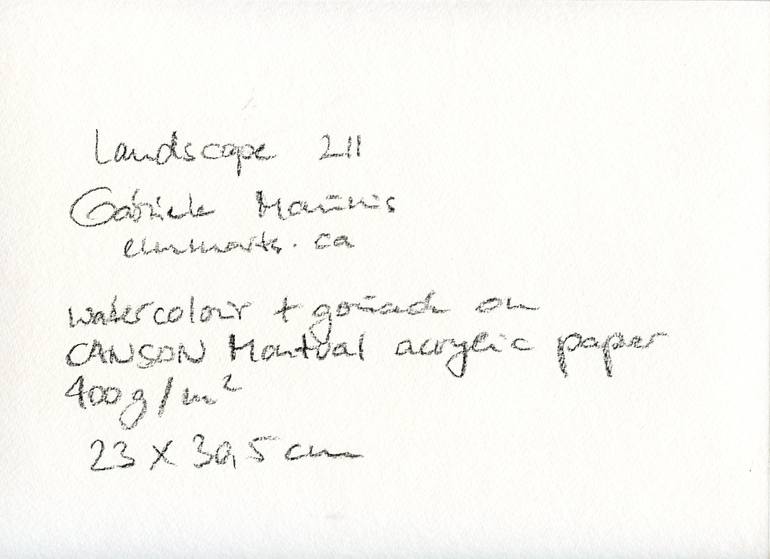 Landscape 211
Gabriele Maurus
elmmarts.ca
watercolour + gouach on
CANSON Montval acrylic paper
400g/m²
23 x 30,5 cm